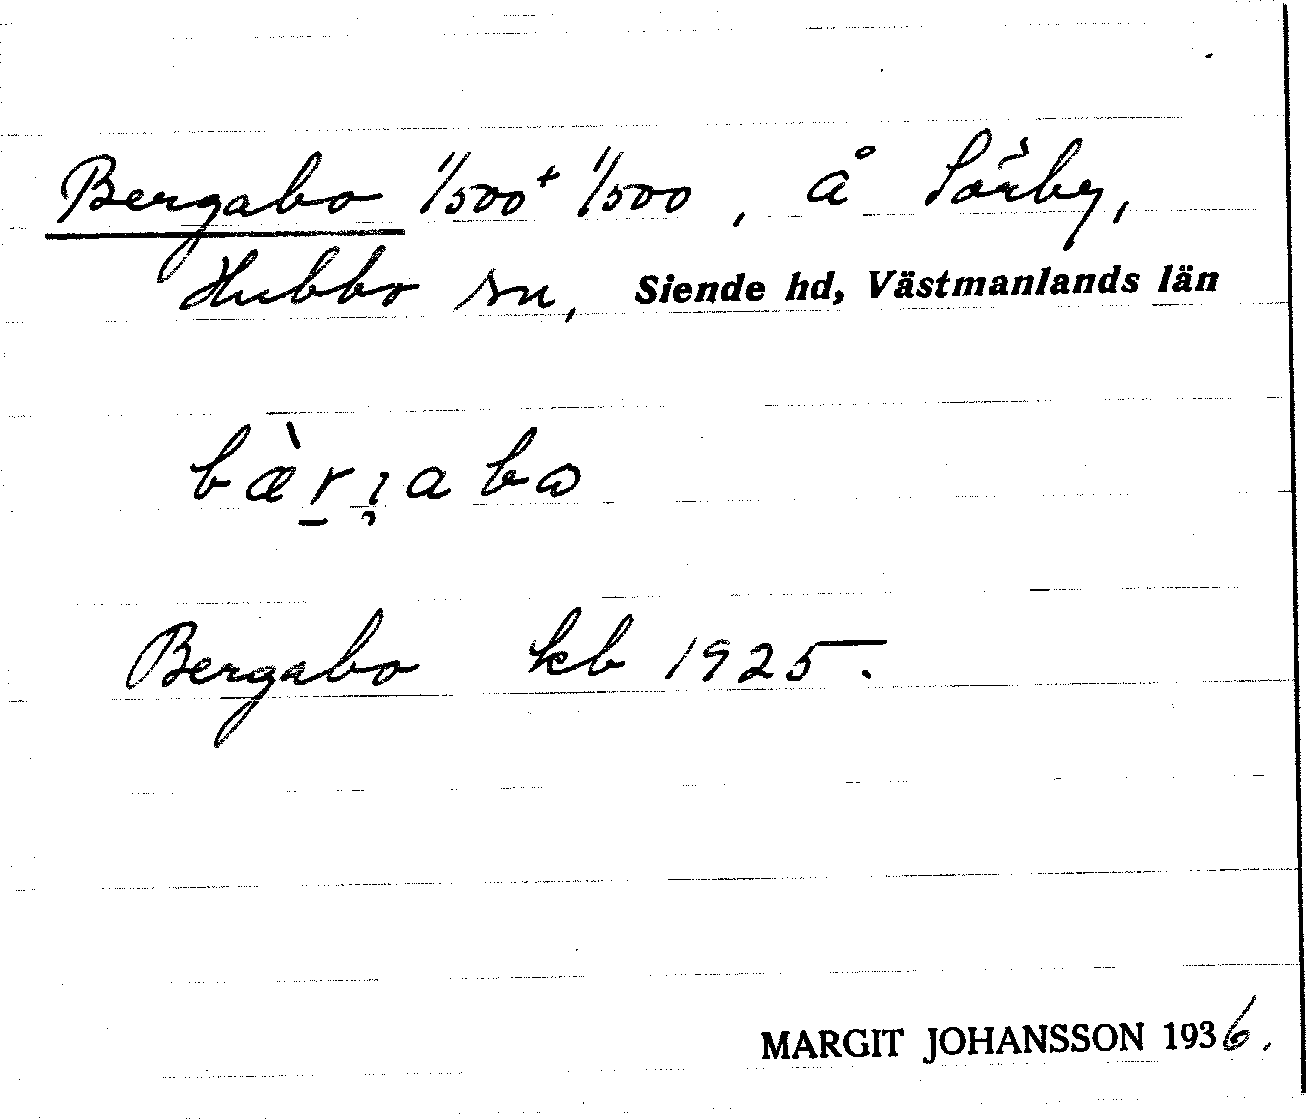 Bergabo 1/500 + 1/500, å Sörby,
Hubbo sn, Siende hd, Västmanlands län
bæ̀r̠ı̨abω
Bergabo kb 1925.
MARGIT JOHANSSON 1936.